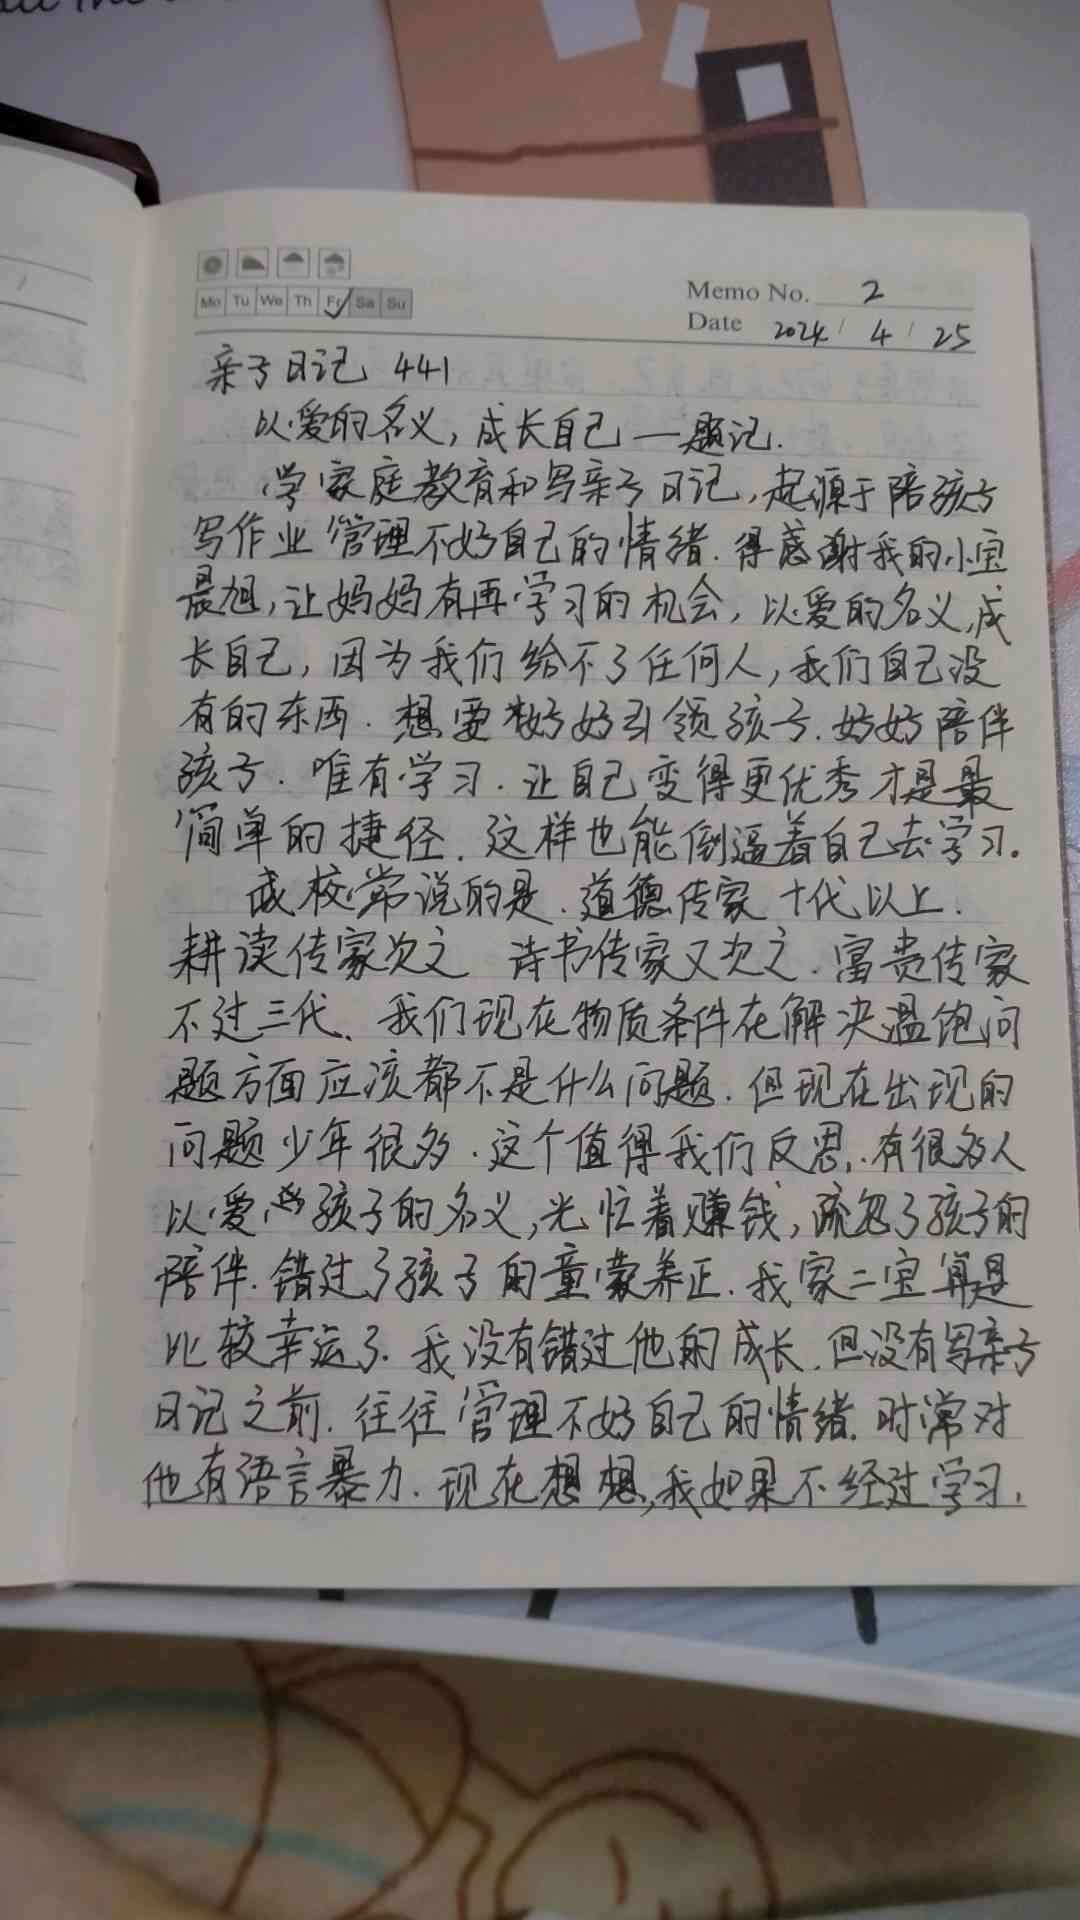 Mo Tu We Th Fr Sa Su
Memo No. 2
Date 2024 / 4 / 25
亲子日记 441
以爱的名义，成长自己 — 题记.
学家庭教育和写亲子日记，起源于陪孩子
写作业管理不好自己的情绪. 得感谢我的小宝
晨旭，让妈妈有再学习的机会，以爱的名义，成
长自己，因为我们给不了任何人，我们自己没
有的东西. 想要好好引领孩子. 好好陪伴
孩子. 唯有学习. 让自己变得更优秀才是最
简单的捷径. 这样也能倒逼着自己去学习。
成校常说的是. 道德传家十代以上.
耕读传家次之 诗书传家又次之. 富贵传家
不过三代、我们现在物质条件在解决温饱问
题方面应该都不是什么问题. 但现在出现的
问题少年很多. 这个值得我们反思. 有很多人
以爱孩子的名义，光忙着赚钱，疏忽了孩子的
陪伴. 错过了孩子的童蒙养正. 我家二宝算是
比较幸运了. 我没有错过他的成长. 但没有写亲子
日记之前. 往往管理不好自己的情绪. 时常对
他有语言暴力. 现在想想，我如果不经过学习.